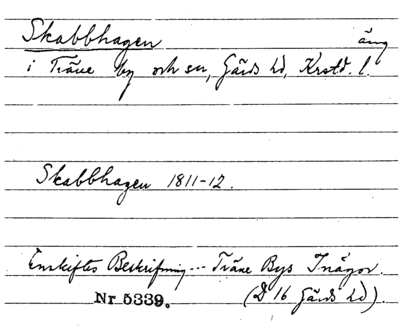 Skabbhagen äng
i Träne by och sn, Gärds hd, Krstd. l.
Skabbhagen 1811-12.
Enskiftes Beskrifning... Träne Bys Inägor.
Nr 5339. (D 16 Gärds hd).